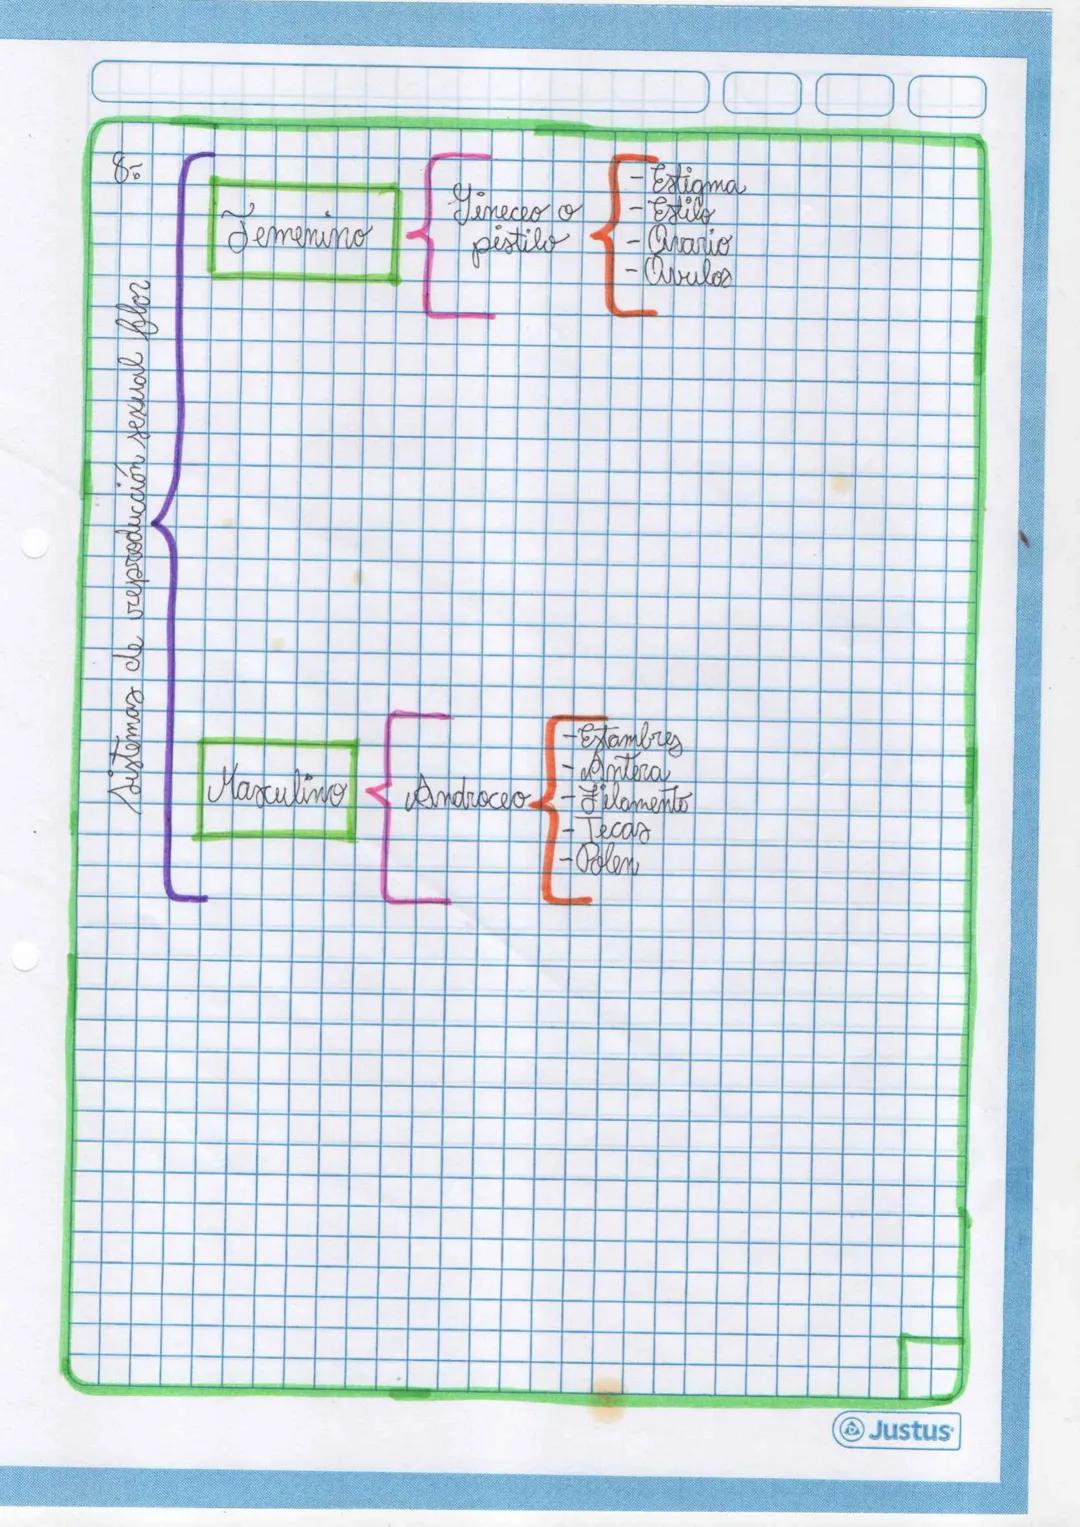 8.-
Sistemas de reproducción sexual flor
Femenino
Gineceo o
pistilo
- Estigma
- Estilo
- Ovario
- Óvulos
Masculino
Androceo
- Estambres
- Antera
- Filamento
- Tecas
- Polen
Justus